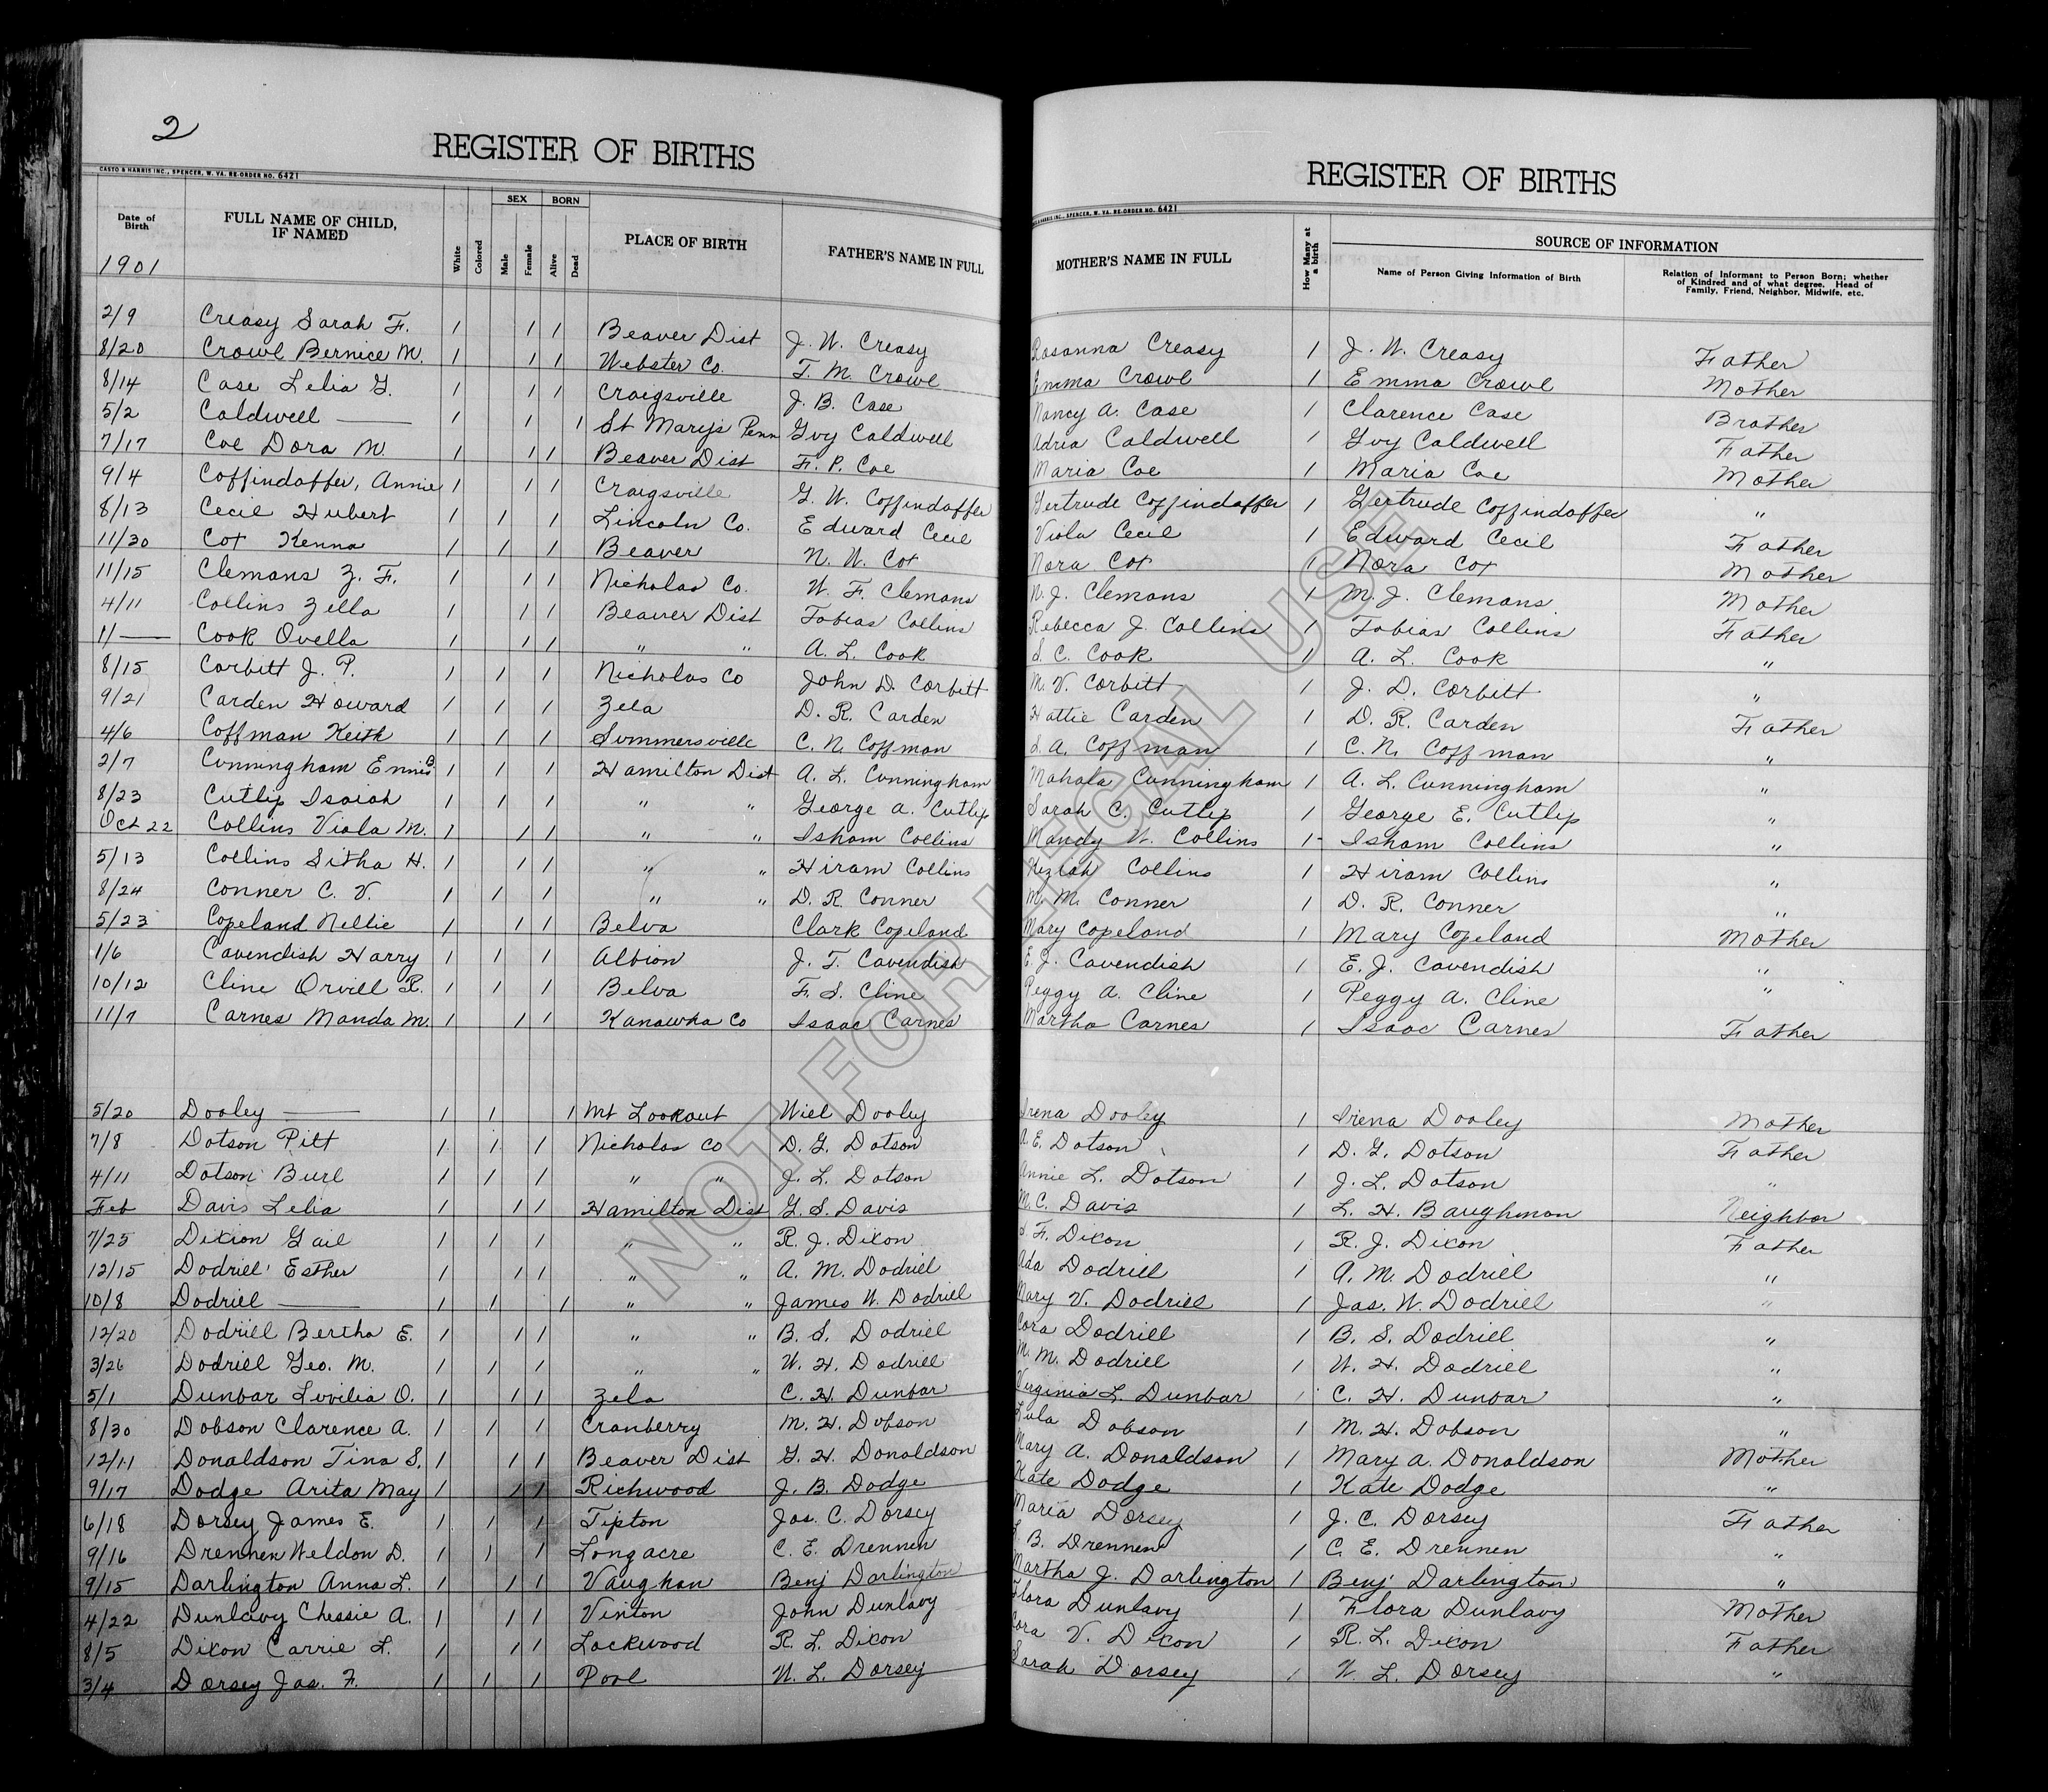 2
REGISTER OF BIRTHS
CASTO & HARRIS INC., SPENCER, W. VA. RE-ORDER NO. 6421
Date of Birth
1901
FULL NAME OF CHILD, IF NAMED
White
Colored
SEX
Male
Female
BORN
Alive
Dead
PLACE OF BIRTH
FATHER'S NAME IN FULL
REGISTER OF BIRTHS
HARRIS INC., SPENCER, W. VA. RE-ORDER NO. 6421
MOTHER'S NAME IN FULL
How Many at a birth
SOURCE OF INFORMATION
Name of Person Giving Information of Birth
Relation of Informant to Person Born; whether of Kindred and of what degree. Head of Family, Friend, Neighbor, Midwife, etc.
2/9 Creasy Sarah F. 1 1 1 Beaver Dist J. W. Creasy Rosanna Creasy 1 J. W. Creasy Father
8/20 Crowl Bernice M. 1 1 1 Webster Co. T. M. Crowl Emma Crowl 1 Emma Crowl Mother
8/14 Case Lelia G. 1 1 1 Craigsville J. B. Case Nancy A. Case 1 Clarence Case Brother
5/2 Caldwell — 1 1 1 St Marys Penn Guy Caldwell Adria Caldwell 1 Guy Caldwell Father
7/17 Coe Dora M. 1 1 1 Beaver Dist F. P. Coe Maria Coe 1 Maria Coe Mother
9/4 Coffindaffer, Annie 1 1 1 Craigsville G. W. Coffindaffer Gertrude Coffindaffer 1 Gertrude Coffindaffer "
8/13 Cecil Hubert 1 1 1 Lincoln Co. Edward Cecil Viola Cecil 1 Edward Cecil Father
11/30 Cox Kenna 1 1 1 Beaver N. W. Cox Nora Cox 1 Nora Cox Mother
11/15 Clemans Z. F. 1 1 1 Nicholas Co. W. F. Clemans N. J. Clemans 1 M. J. Clemans Mother
4/11 Collins Zella 1 1 1 Beaver Dist Tobias Collins Rebecca J. Collins 1 Tobias Collins Father
11 — Cook Ovella 1 1 1 " " A. L. Cook S. C. Cook 1 A. L. Cook "
8/15 Corbitt J. P. 1 1 1 Nicholas Co John D. Corbitt M. V. Corbitt 1 J. D. Corbitt "
9/21 Carden Howard 1 1 1 Zela D. R. Carden Hattie Carden 1 D. R. Carden Father
4/6 Coffman Keith 1 1 1 Summersville C. N. Coffman S. A. Coffman 1 C. N. Coffman "
2/7 Cunningham Ennis B. 1 1 1 Hamilton Dist A. L. Cunningham Mahala Cunningham 1 A. L. Cunningham "
8/23 Cutlip Isaiah 1 1 1 " " George A. Cutlip Sarah C. Cutlip 1 George E. Cutlip "
Oct 22 Collins Viola M. 1 1 1 " " Isham Collins Mandy W. Collins 1 Isham Collins "
5/13 Collins Sitha H. 1 1 1 " " Hiram Collins Keziah Collins 1 Hiram Collins "
8/24 Conner C. V. 1 1 1 " " D. R. Conner M. M. Conner 1 D. R. Conner "
5/23 Copeland Nellie 1 1 1 Belva Clark Copeland Mary Copeland 1 Mary Copeland Mother
1/6 Cavendish Harry 1 1 1 Albion J. T. Cavendish E. J. Cavendish 1 E. J. Cavendish "
10/12 Cline Orvill R. 1 1 1 Belva F. S. Cline Peggy A. Cline 1 Peggy A. Cline "
11/7 Carnes Manda M. 1 1 1 Kanawha Co Isaac Carnes Martha Carnes 1 Isaac Carnes Father
5/20 Dooley — 1 1 1 Mt Lookout Wiel Dooley Irena Dooley 1 Irena Dooley Mother
7/8 Dotson Pitt 1 1 1 Nicholas Co D. G. Dotson A. E. Dotson 1 D. G. Dotson Father
4/11 Dotson Burl 1 1 1 " " J. L. Dotson Annie L. Dotson 1 J. L. Dotson "
Feb Davis Lelia 1 1 1 Hamilton Dist G. S. Davis M. C. Davis 1 L. H. Baughman Neighbor
7/25 Dixion Gail 1 1 1 " " R. J. Dixon S. F. Dixon 1 R. J. Dixon Father
12/15 Dodrill Esther 1 1 1 " " A. M. Dodrill Ada Dodrill 1 A. M. Dodrill "
10/8 Dodrill — 1 1 1 " " James W. Dodrill Mary V. Dodrill 1 Jas. W. Dodrill "
12/20 Dodrill Bertha E. 1 1 1 " " B. S. Dodrill Cora Dodrill 1 B. S. Dodrill "
3/26 Dodrill Geo. M. 1 1 1 " " W. H. Dodrill M. M. Dodrill 1 W. H. Dodrill "
5/1 Dunbar Luvilia O. 1 1 1 Zela C. H. Dunbar Virginia L. Dunbar 1 C. H. Dunbar "
8/30 Dobson Clarence A. 1 1 1 Cranberry M. H. Dobson Lula Dobson 1 M. H. Dobson "
12/11 Donaldson Tina S. 1 1 1 Beaver Dist G. H. Donaldson Mary A. Donaldson 1 Mary A. Donaldson Mother
9/17 Dodge Arita May 1 1 1 Richwood J. B. Dodge Kate Dodge 1 Kate Dodge "
6/18 Dorsey James E. 1 1 1 Tipton Jas. C. Dorsey Maria Dorsey 1 J. C. Dorsey Father
9/16 Drennen Weldon D. 1 1 1 Longacre C. E. Drennen L. B. Drennen 1 C. E. Drennen "
9/15 Darlington Anna L. 1 1 1 Vaughan Benj Darlington Martha J. Darlington 1 Benj Darlington "
4/22 Dunlavy Chessie A. 1 1 1 Vinton John Dunlavy Flora Dunlavy 1 Flora Dunlavy Mother
8/5 Dixon Carrie L. 1 1 1 Lockwood R. L. Dixon Cora V. Dixon 1 R. L. Dixon Father
3/4 Dorsey Jas. F. 1 1 1 Pool W. L. Dorsey Sarah Dorsey 1 W. L. Dorsey "
NOT FOR LEGAL USE